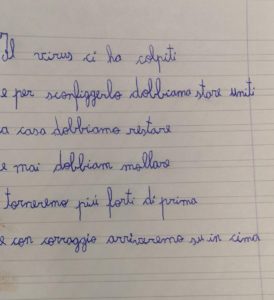 Il virus ci ha colpiti
e per sconfiggerlo dobbiamo stare uniti
a casa dobbiamo restare
e mai dobbiam mollare
torneremo più forti di prima
e con corraggio arriveremo su in cima